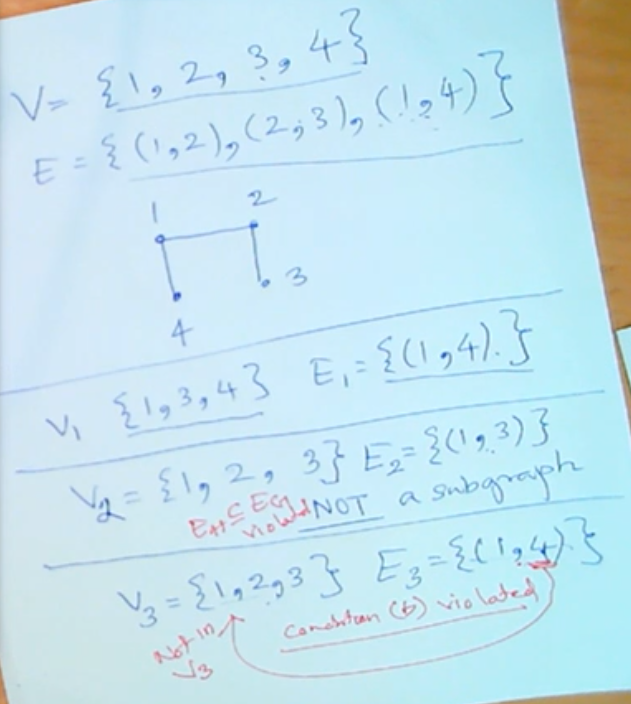 V= {1, 2, 3, 4}
E = {(1,2),(2,3),(1,4)}
1 2
3
4
V₁ {1,3,4} E₁={(1,4).}
V₂ = {1, 2, 3} E₂={(1,3)}
E_H ⊆ E_G violated NOT a subgraph
V₃ = {1,2,3} E₃={(1,4).}
Not in V₃ Condition (b) violated